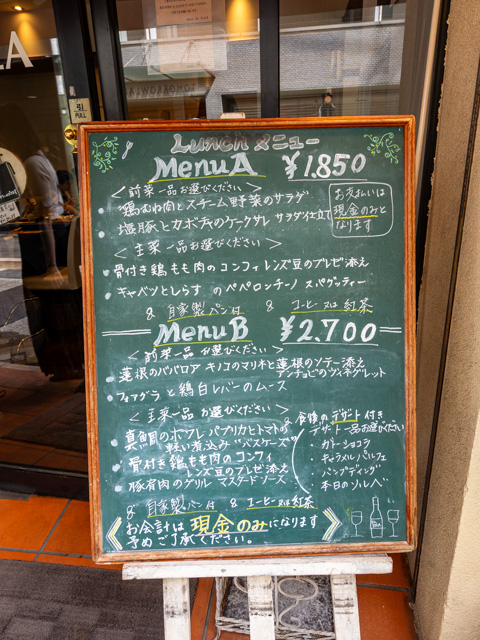 A
引
PULL
Lunch メニュー
Menu A ¥1.850
＜前菜一品お選びください＞
・鶏むね肉とスチーム野菜のサラダ
・塩豚とカボチャのケークサレ サラダ仕立て
お支払いは
現金のみと
なります
＜主菜一品お選びください＞
・骨付き鶏もも肉のコンフィ レンズ豆のブレゼ添え
・キャベツとしらすのペペロンチーノ スパゲッティー
& 自家製パン付 & コーヒー又は紅茶
Menu B ¥2,700
＜前菜一品お選びください＞
・蓮根のババロア キノコのマリネと蓮根のソテー添え
アンチョビのヴィネグレット
・フォアグラと鶏白レバーのムース
＜主菜一品お選びください＞
・真鯛のポワレ パプリカとトマトの
軽い煮込み "バスケーズ"
・骨付き鶏もも肉のコンフィ
レンズ豆のブレゼ添え
・豚肩肉のグリル マスタードソース
& 食後のデザート付き
デザート一品お選びください
・ガトーショコラ
・キャラメルパルフェ
・パンプディング
・本日のソルベ
& 自家製パン付 & コーヒー又は紅茶
お会計は現金のみになります
予めご了承ください。